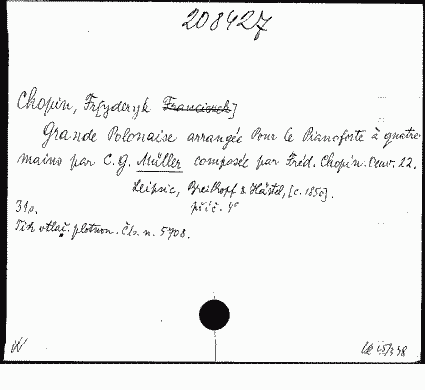 208427
Chopin, Fr[yderyk Franciszek]
Grande Polonaise arrangée pour le Pianoforte à quatre
mains par C. G. Müller composée par Fréd. Chopin. Oeuv. 22.
Leipsic, Breitkopf & Härtel, [c. 1850].
31 p. příč. 4°
Tisk otlač. plotnon. Čís. n. 5708.
W